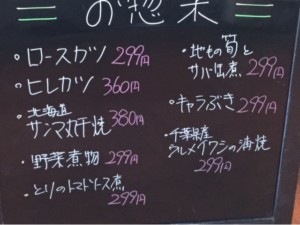 お惣菜
・ロースカツ 299円
・ヒレカツ 360円
・北海道
サンマ丸干焼 380円
・野菜煮物 299円
・とりのトマトソース煮
299円
・地もの筍と
サバ缶煮 299円
・キャラぶき 299円
・千葉県産
ウルメイワシの海焼
299円